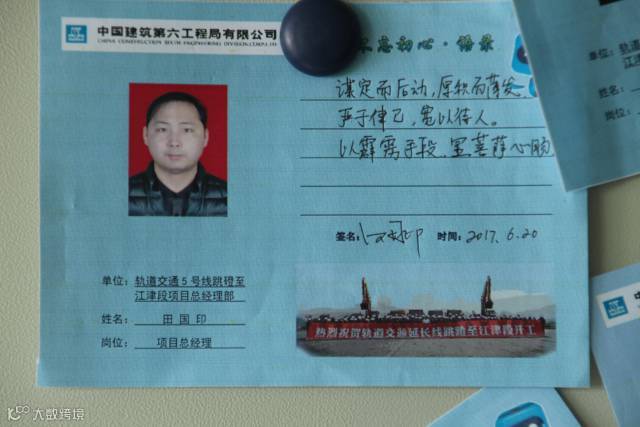 中国建筑第六工程局有限公司
CHINA CONSTRUCTION SIXTH ENGINEERING DIVISION.CORP.LTD
不忘初心·语录
谋定而后动,厚积而薄发,
严于律己,宽以待人。
以霹雳手段,显菩萨心肠
签名: 时间:2017.6.20
单位:轨道交通5号线跳磴至
江津段项目总经理部
姓名:田国印
岗位:项目总经理
热烈祝贺轨道交通延长线跳磴至江津段开工
轨道
江津
单位:
姓名:
岗位:
大数跨境